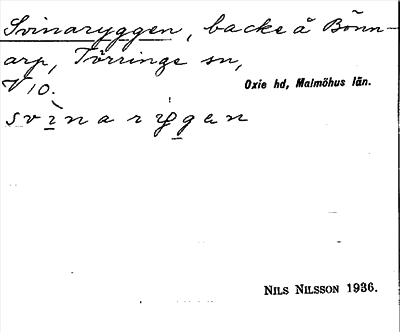 Svinaryggen, backe å Bönn-
arp, Törringe sn,
V 10.
Oxie hd, Malmöhus län.
svìnaryggen
NILS NILSSON 1936.